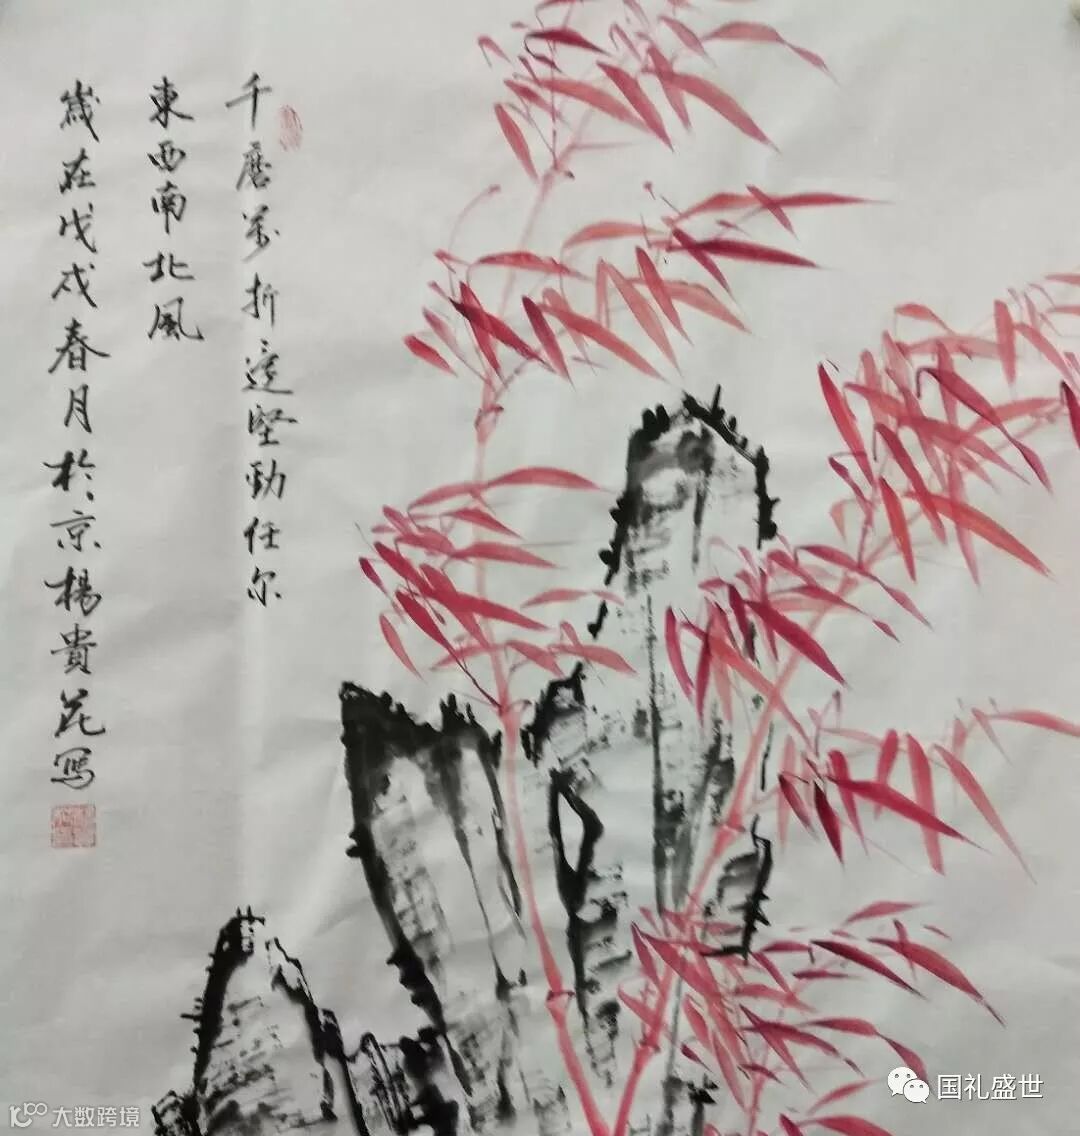 千磨萬折還堅勁任尔
東西南北風
歲在戊戌春月於京楊貴花写
国礼盛世
大数跨境